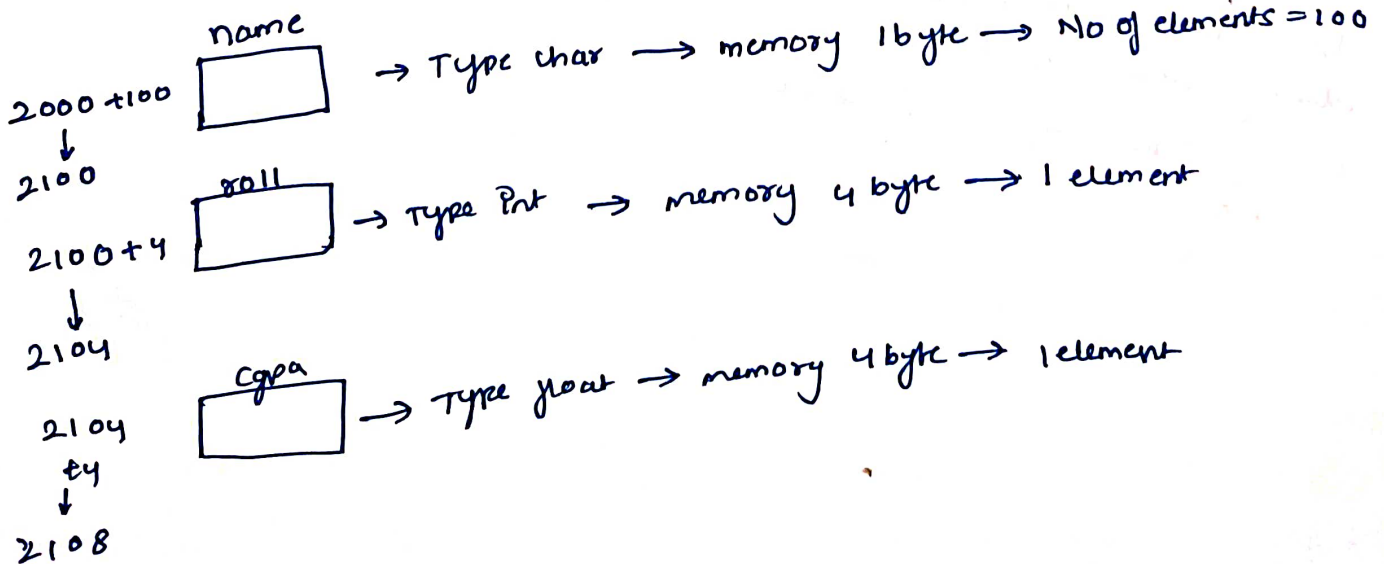 name
2000 +100 → Type char → memory 1byte → No of elements = 100
↓
2100
roll
2100+4 → Type int → memory 4 byte → 1 element
↓
2104
cgpa
2104 → Type float → memory 4 byte → 1 element
+4
↓
2108